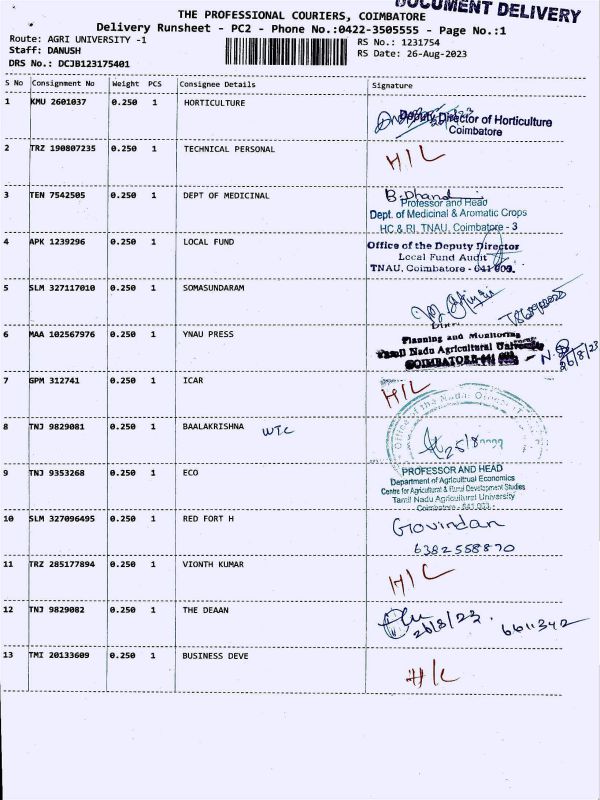 DOCUMENT DELIVERY
THE PROFESSIONAL COURIERS, COIMBATORE
Delivery Runsheet - PC2 - Phone No.:0422-3505555 - Page No.:1
Route: AGRI UNIVERSITY -1
RS No.: 1231754
Staff: DANUSH
RS Date: 26-Aug-2023
DRS No.: DCJB123175401
S No Consignment No Weight PCS Consignee Details Signature
1 KMU 2601037 0.250 1 HORTICULTURE
Deputy Director of Horticulture
Coimbatore
2 TRZ 190807235 0.250 1 TECHNICAL PERSONAL
H/L
3 TEN 7542505 0.250 1 DEPT OF MEDICINAL
Professor and Head
Dept. of Medicinal & Aromatic Crops
HC & RI, TNAU, Coimbatore - 3
4 APK 1239296 0.250 1 LOCAL FUND
Office of the Deputy Director
Local Fund Audit
TNAU, Coimbatore - 641 003.
5 SLM 327117010 0.250 1 SOMASUNDARAM
6 MAA 102567976 0.250 1 YNAU PRESS
Planning and Monitoring
Tamil Nadu Agricultural University
COIMBATORE-641 003
26/8/23
7 GPM 312741 0.250 1 ICAR
H/L
8 TNJ 9829081 0.250 1 BAALAKRISHNA WTC
25/8
9 TNJ 9353268 0.250 1 ECO
PROFESSOR AND HEAD
Department of Agricultural Economics
Centre for Agricultural & Rural Development Studies
Tamil Nadu Agricultural University
Coimbatore - 641 003.
10 SLM 327096495 0.250 1 RED FORT H
Govindan
6382558870
11 TRZ 285177894 0.250 1 VIONTH KUMAR
H/L
12 TNJ 9829082 0.250 1 THE DEAAN
26/8/23. 6611342
13 TMI 20133609 0.250 1 BUSINESS DEVE
H/L